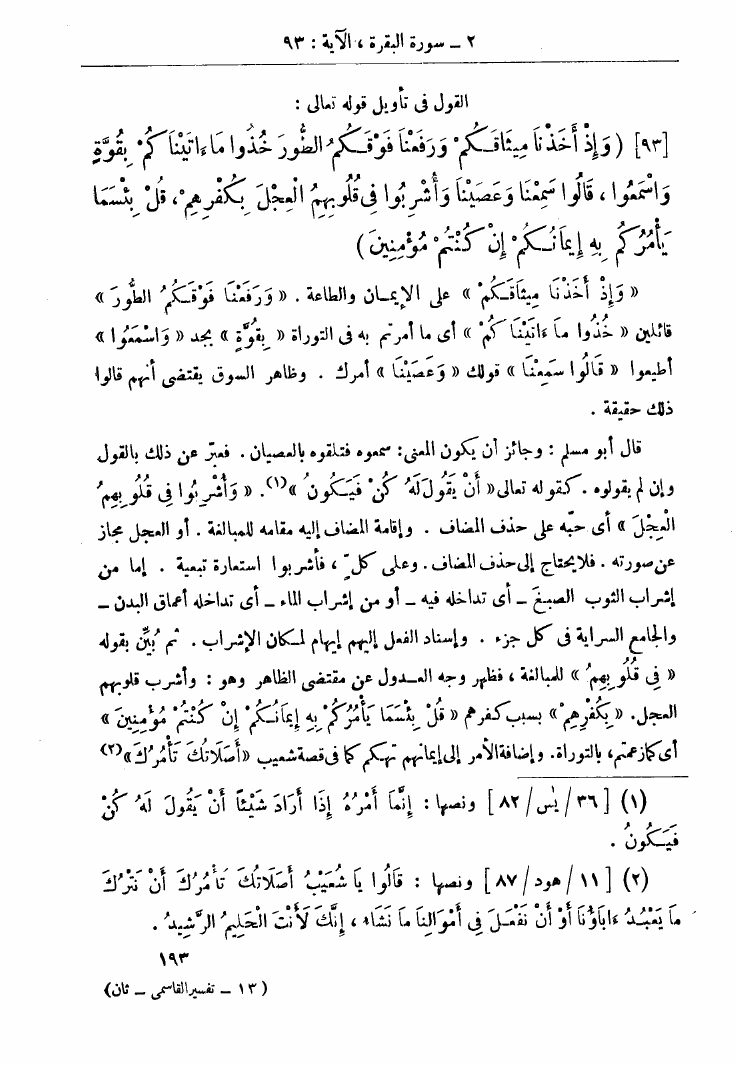 ٢ ــ سورة البقرة ، الآية : ٩٣
القول فى تأويل قوله تعالى :
[٩٣] ( وَإِذْ أَخَذْنَا مِيثَاقَكُمْ وَرَفَعْنَا فَوْقَكُمُ الطُّورَ خُذُوا مَا ءَاتَيْنَاكُمْ بِقُوَّةٍ
وَاسْمَعُوا ، قَالُوا سَمِعْنَا وَعَصَيْنَا وَأُشْرِبُوا فِى قُلُوبِهِمُ الْعِجْلَ بِكُفْرِهِمْ ، قُلْ بِئْسَمَا
يَأْمُرُكُم بِهِ إِيمَانُكُمْ إِنْ كُنْتُمْ مُؤْمِنِينَ )
« وَإِذْ أَخَذْنَا مِيثَاقَكُمْ » على الإيمـان والطاعة . « وَرَفَعْنَا فَوْقَكُمُ الطُّورَ »
قائلين « خُذُوا مَا ءَاتَيْنَاكُمْ » أى ما أمرتم به فى التوراة « بِقُوَّةٍ » بجد « وَاسْمَعُوا »
أطيعوا « قَالُوا سَمِعْنَا » قولك « وَعَصَيْنَا » أمرك . وظاهر السوق يقتضى أنهم قالوا
ذلك حقيقة .
قال أبو مسلم : وجائز أن يكون المعنى : سمعوه فتلقوه بالعصيان . فعبّر عن ذلك بالقول
وإن لم يقولوه . كقوله تعالى « أَنْ يَقُولَ لَهُ كُنْ فَيَكُونُ »(١). « وَأُشْرِبُوا فِى قُلُوبِهِمُ
الْعِجْلَ » أى حبّه على حذف المضاف . وإقامة المضاف إليه مقامه للمبالغة . أو العجل مجاز
عن صورته . فلا يحتاج إلى حذف المضاف . وعلى كلّ ، فأشربوا استعارة تبعية . إما من
إشراب الثوب الصبغَ ــ أى تداخله فيه ــ أو من إشراب الماء ــ أى تداخله أعماق البدن ــ
والجامع السراية فى كل جزء . وإسناد الفعل إليهم إيهام لمكان الإشراب . ثم بُيِّن بقوله
« فِى قُلُوبِهِمُ » للمبالغة ، فظهر وجه العـدول عن مقتضى الظاهر وهو : وأشرب قلوبهم
العجل. « بِكُفْرِهِمْ » بسبب كفرهم « قُلْ بِئْسَمَا يَأْمُرُكُمْ بِهِ إِيمَانُكُمْ إِنْ كُنْتُمْ مُؤْمِنِينَ »
أى كما زعمتم، بالتوراة. وإضافة الأمر إلى إيمانهم تهكم كما فى قصة شعيب «أَصَلَاتُكَ تَأْمُرُكَ»(٢)
(١) [ ٣٦ / يٰس / ٨٢ ] ونصها : إِنَّمَا أَمْرُهُ إِذَا أَرَادَ شَيْئًا أَنْ يَقُولَ لَهُ كُنْ
فَيَكُونُ .
(٢) [ ١١ / هود / ٨٧ ] ونصها : قَالُوا يَا شُعَيْبُ أَصَلَاتُكَ تَأْمُرُكَ أَنْ نَتْرُكَ
مَا يَعْبُدُ ءَابَاؤُنَا أَوْ أَنْ نَفْعَلَ فِى أَمْوَالِنَا مَا نَشَاءُ ، إِنَّكَ لَأَنْتَ الْحَلِيمُ الرَّشِيدُ .
١٩٣
( ١٣ ــ تفسير القاسمى ــ ثان )